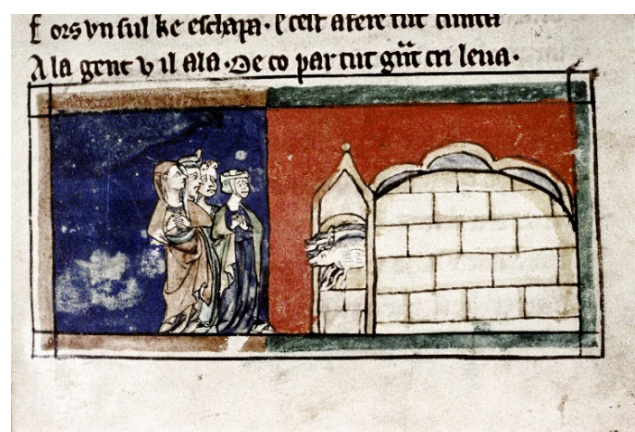 Fors vn sul ke eschapa· e cest afere tut cunta
A la gent v il ala· De co par tut g̃nt cri leua·